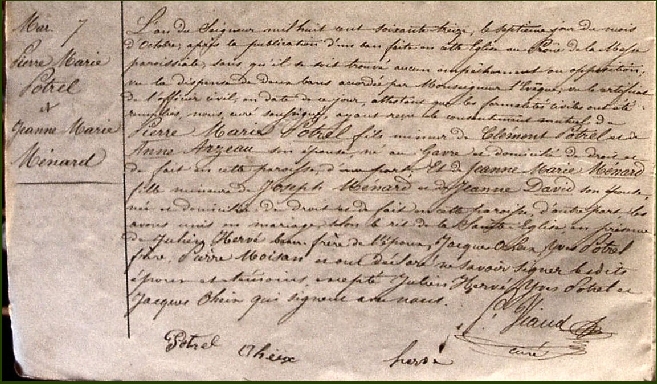 Mar. 7
Pierre Marie
Potrel
et
Jeanne Marie
Ménard
L'an du Seigneur mil huit cent soixante treize, le septième jour du mois
d'Octobre, après la publication d'un ban faite en cette Eglise au Prône de la Messe
paroissiale, sans qu'il se soit trouvé aucun empêchement ou opposition,
vu la dispense de deux bans accordée par Monseigneur l'Evêque, vu le certificat
de l'officier civil, en date de ce jour, attestant que les formalités civiles ont été
remplies, nous, curé soussigné, ayant reçu le consentement mutuel de
Pierre Marie Potrel, fils mineur de Clément Potrel et de
Anne Arzeau son épouse, né au Gavre et domicilié de droit et
de fait en cette paroisse, d'une part; Et de Jeanne Marie Menard
fille mineure de Joseph Ménard et de Jeanne David son épouse,
née et domiciliée de droit et de fait en cette paroisse, d'autre part, les
avons unis en mariage, selon le rit de la Sainte Eglise en présence
de Julien Hervé beau-frère de l'époux, Jacques Yves Potrel
frère, Pierre Moisan et ont déclaré ne savoir signer les dits
époux et témoins, excepté Julien Hervé, Yves Potrel et
Jacques qui signent avec nous.
Potrel
hervé
Giaud
curé